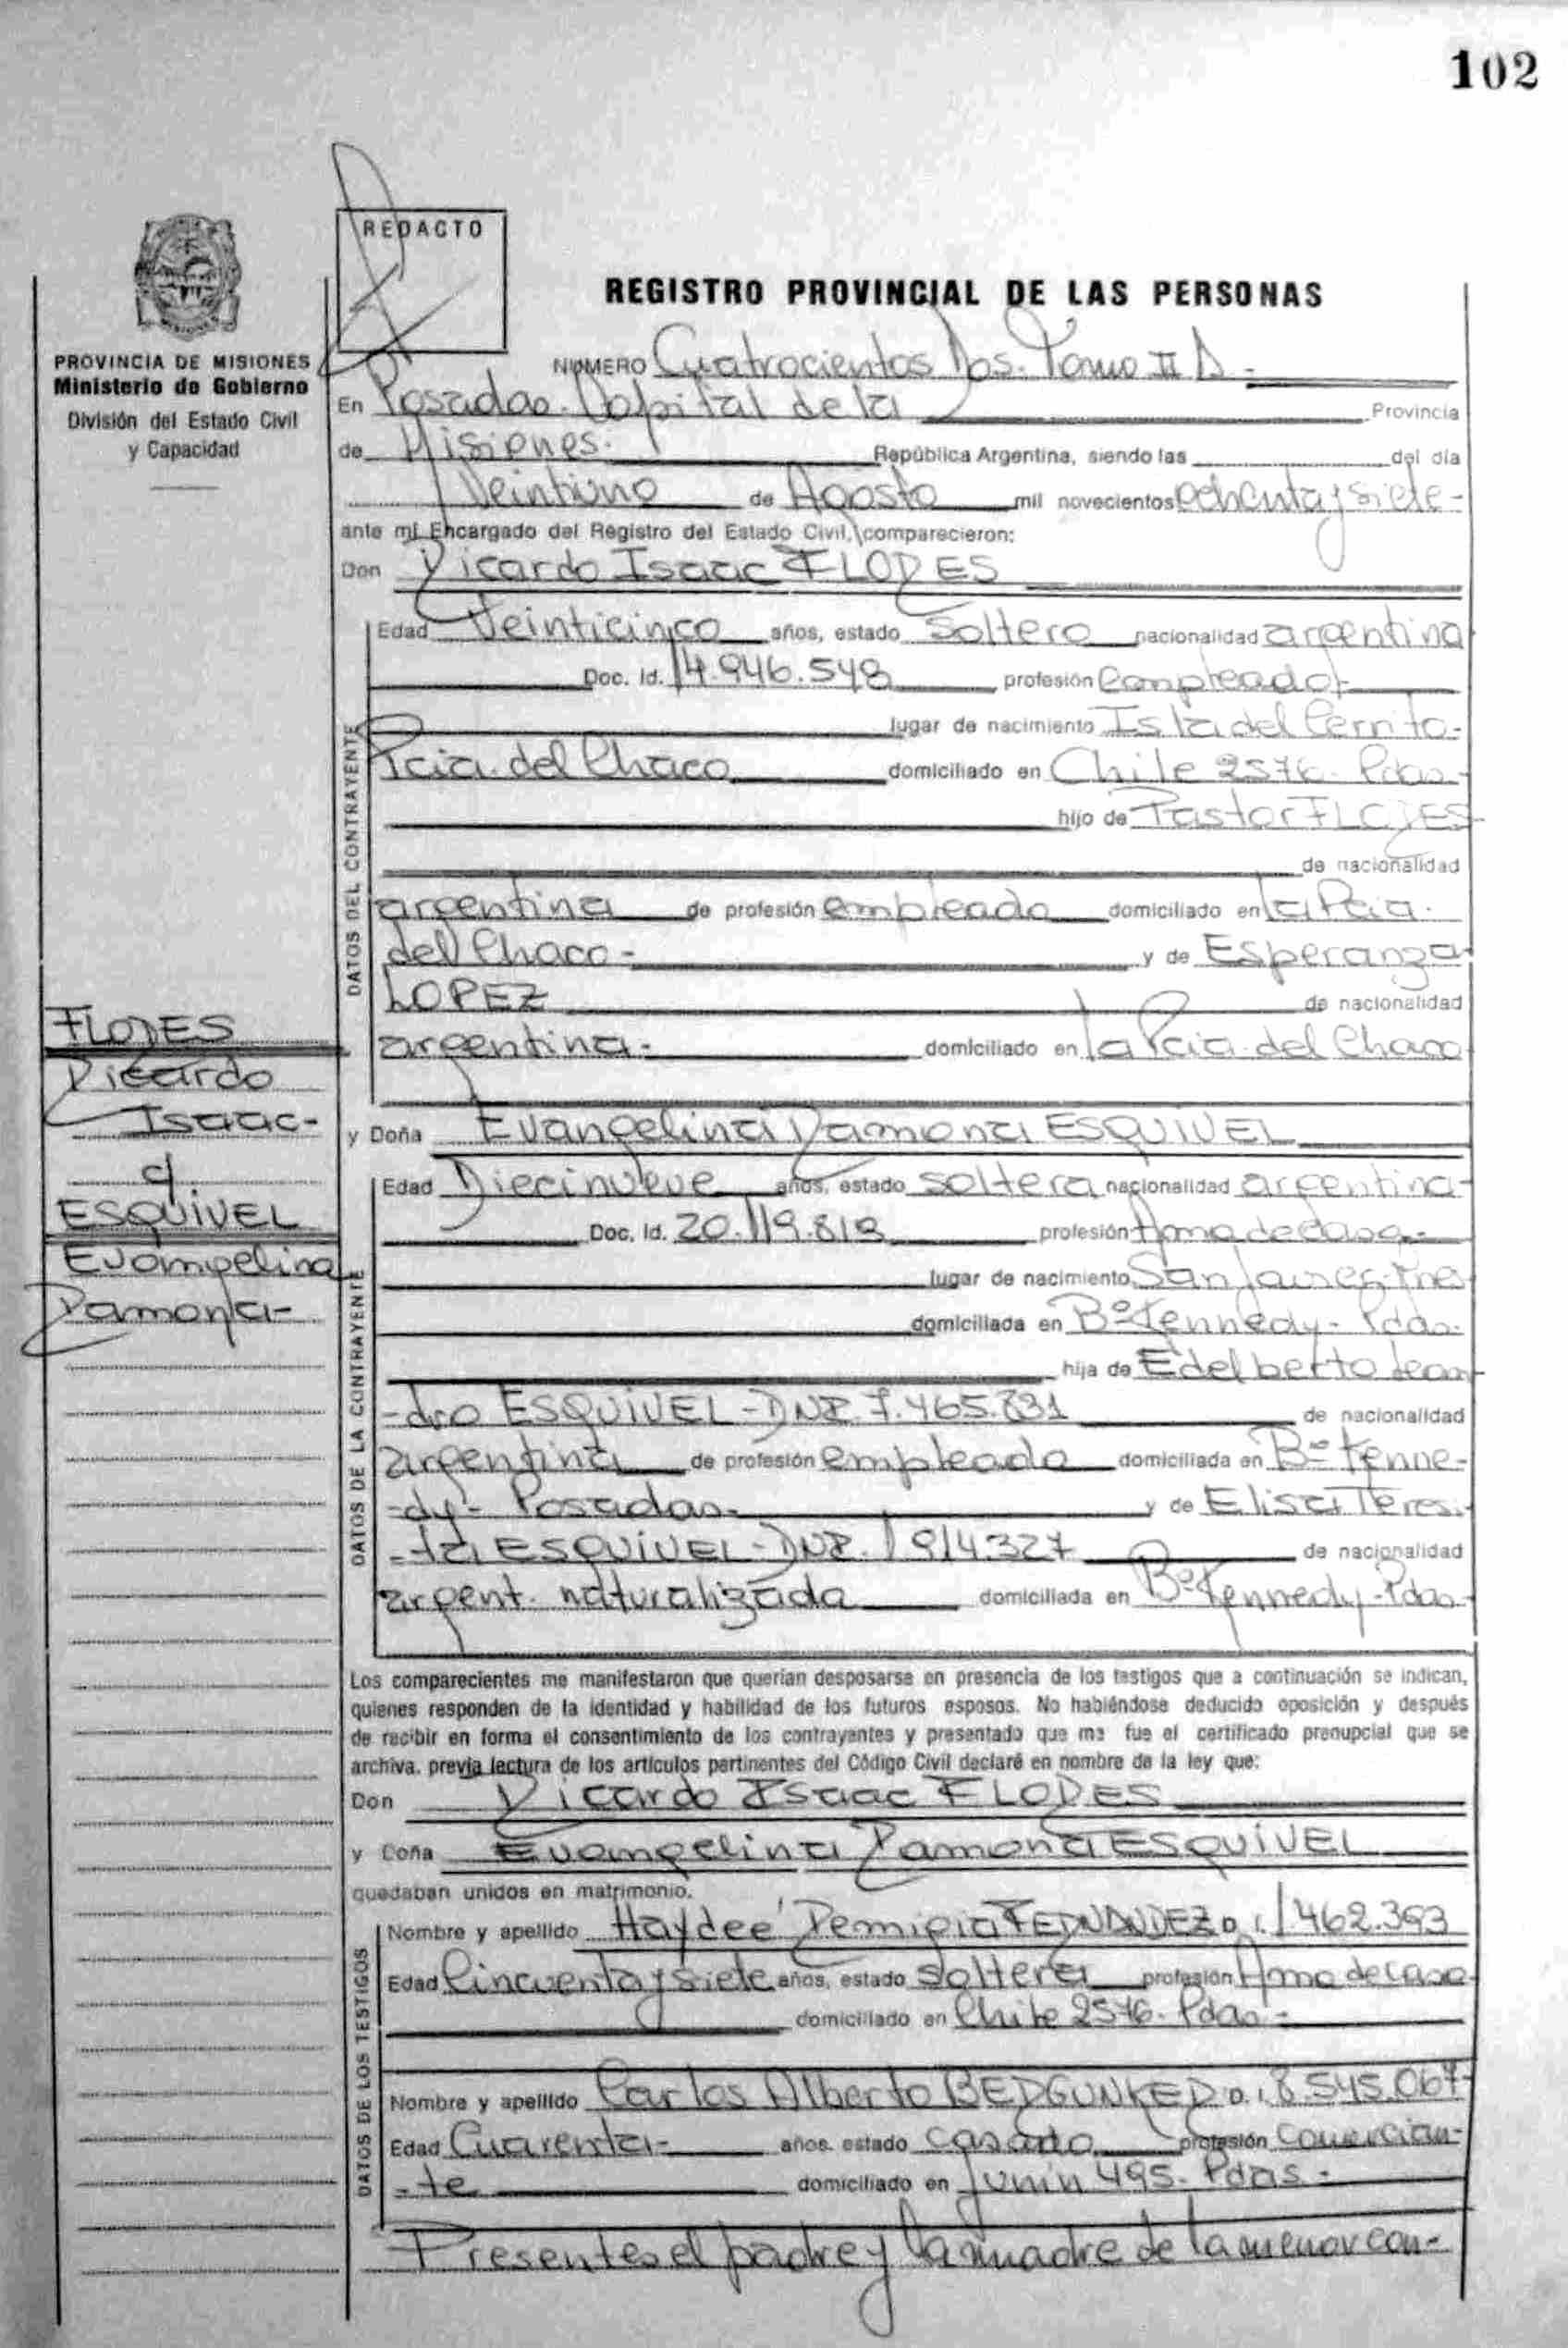 102
REDACTO
REGISTRO PROVINCIAL DE LAS PERSONAS
PROVINCIA DE MISIONES
Ministerio de Gobierno
División del Estado Civil
y Capacidad
NUMERO Cuatrocientos Dos. Tomo II D -
En Posadas. Capital de la Provincia
de Misiones. República Argentina, siendo las del día
Veintiuno de Agosto mil novecientos ochenta y siete -
ante mi Encargado del Registro del Estado Civil, comparecieron:
Don Ricardo Isaac FLORES
DATOS DEL CONTRAYENTE
Edad Veinticinco años, estado Soltero nacionalidad argentina
Doc. Id. 14.946.548 profesión Empleado
lugar de nacimiento Isla del Cerrito -
Pcia. del Chaco domiciliado en Chile 2576. Pdas -
hijo de Pastor FLORES
de nacionalidad
argentina de profesión empleado domiciliado en la Pcia.
del Chaco - y de Esperanza
LOPEZ de nacionalidad
argentina - domiciliado en la Pcia. del Chaco
FLORES
Ricardo
Isaac -
c/
ESQUIVEL
Evangelina
Ramona -
y Doña Evangelina Ramona ESQUIVEL
DATOS DE LA CONTRAYENTE
Edad Diecinueve años, estado soltera nacionalidad argentina -
Doc. Id. 20.119.819 profesión Ama de casa -
lugar de nacimiento San Javier -
domiciliada en Bº Kennedy - Pdas.
hija de Edelberto Lean-
-dro ESQUIVEL - DNI. 7.465.831 de nacionalidad
argentina de profesión empleado domiciliada en Bº Kenne-
-dy - Posadas. y de Elisa Teresi-
-ta ESQUIVEL - DNI. 914.327 de nacionalidad
argent. naturalizada domiciliada en Bº Kennedy - Pdas -
Los comparecientes me manifestaron que querían desposarse en presencia de los testigos que a continuación se indican,
quienes responden de la identidad y habilidad de los futuros esposos. No habiéndose deducido oposición y después
de recibir en forma el consentimiento de los contrayentes y presentado que me fue el certificado prenupcial que se
archiva. previa lectura de los artículos pertinentes del Código Civil declaré en nombre de la ley que:
Don Ricardo Isaac FLORES
y Doña Evangelina Ramona ESQUIVEL
quedaban unidos en matrimonio.
DATOS DE LOS TESTIGOS
Nombre y apellido Haydee Remigia FERNANDEZ D.I. 1462.393
Edad Cincuenta y siete años, estado soltera profesión Ama de casa
domiciliado en Chile 2576. Pdas -
Nombre y apellido Carlos Alberto D.I. 8.545.067
Edad Cuarenta - años. estado casado profesión Comercian-
-te domiciliado en Junín 495. Pdas -
Presentes el padre y la madre de la menor con-